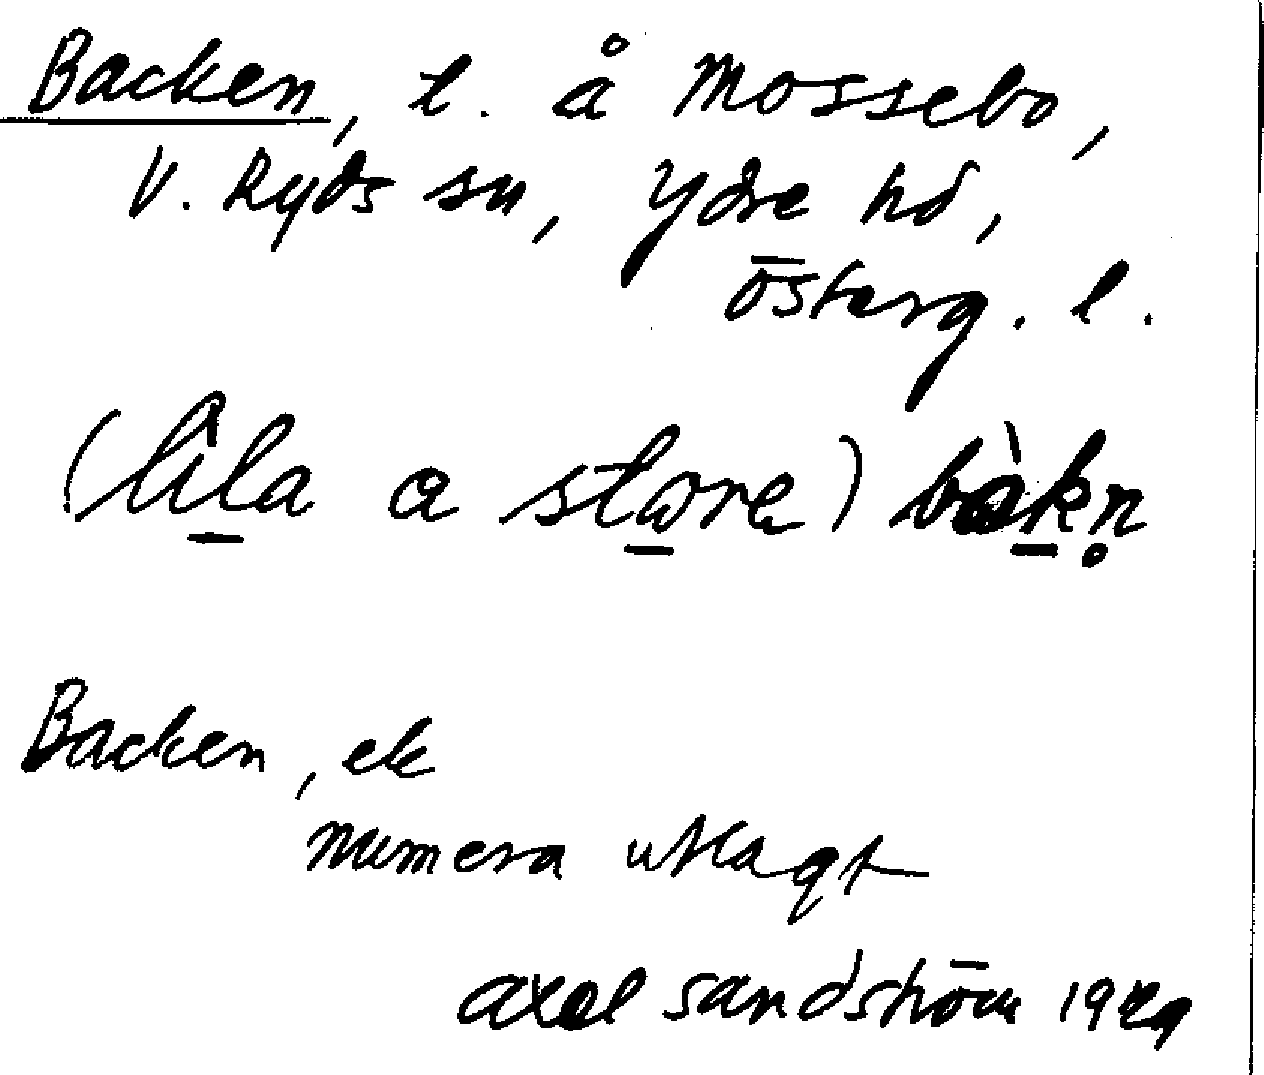 Backen, t. å Mossebo,
V. Ryds sn, Ydre hd,
Österg. l.
(lila a store) bàkn̥
Backen, ek
numera utlagt
Axel Sandström 1929